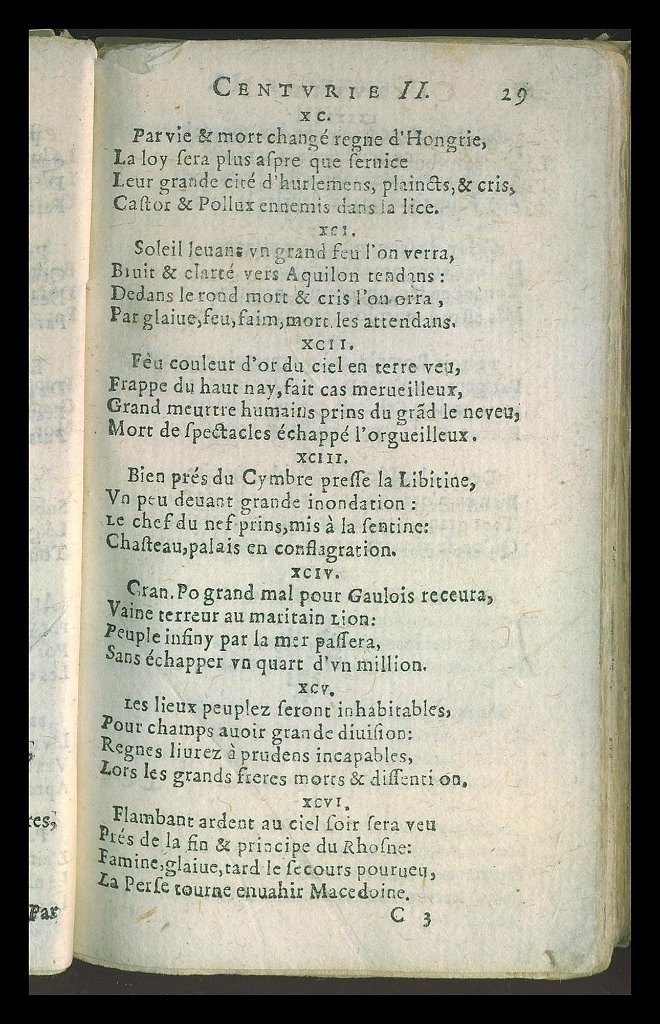 CENTVRIE II. 29
XC.
Par vie & mort changé regne d'Hongrie,
La loy ſera plus aſpre que ſeruice
Leur grande cité d'hurlemens, plaincts, & cris,
Caſtor & Pollux ennemis dans la lice.
XCI.
Soleil leuant vn grand feu l'on verra,
Bruit & clarté vers Aquilon tendans:
Dedans le rond mort & cris l'on orra,
Par glaiue, feu, faim, mort les attendans.
XCII.
Feu couleur d'or du ciel en terre veu,
Frappe du haut nay, fait cas merueilleux,
Grand meurtre humains prins du grãd le neveu,
Mort de ſpectacles échappé l'orgueilleux.
XCIII.
Bien prés du Cymbre preſſe la Libitine,
Vn peu deuant grande inondation:
Le chef du nef prins, mis à la ſentine:
Chaſteau, palais en conflagration.
XCIV.
Gran. Po grand mal pour Gaulois receura,
Vaine terreur au maritain Lion:
Peuple infiny par la mer paſſera,
Sans échapper vn quart d'vn million.
XCV.
Les lieux peuplez ſeront inhabitables,
Pour champs auoir grande diuiſion:
Regnes liurez à prudens incapables,
Lors les grands freres morts & diſſenti on.
XCVI.
Flambant ardent au ciel ſoir ſera veu
Prés de la fin & principe du Rhoſne:
Famine, glaiue, tard le ſecours pourueu,
La Perſe tourne enuahir Macedoine.
C 3
Par